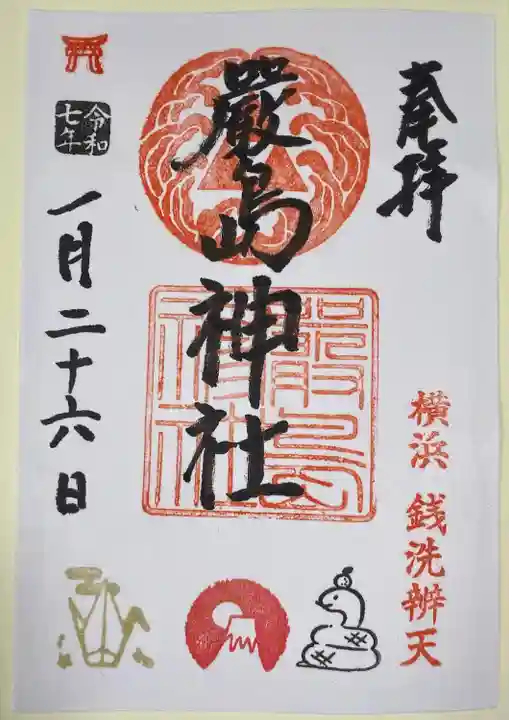 奉拝
横浜 銭洗辨天
嚴島神社
嚴島神社
令和七年
一月二十六日